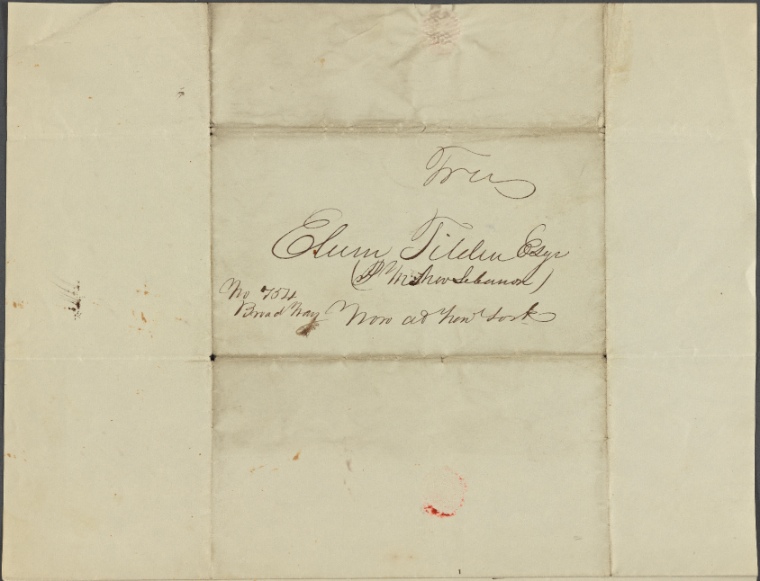 Free
Elam Tilden Esqr
(P M New Lebanon)
No 754
Broad Way Now at New York